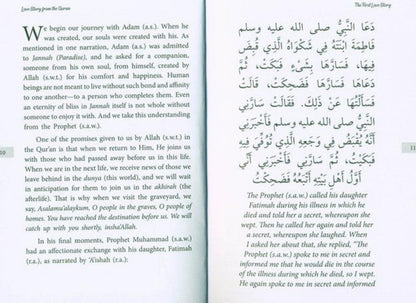 Love Story from the Quran
We begin our journey with Adam (a.s.). When he
was created, our souls were created with his. As
mentioned in one narration, Adam (a.s.) was admitted
to Jannah (Paradise), and he asked for a companion,
someone from his own soul, from himself, created by
Allah (s.w.t.) for his comfort and happiness. Human
beings are not meant to live without such bond and affinity
to one another—to a person who completes them. Even
an eternity of bliss in Jannah itself is not whole without
someone to enjoy it with. And we take this understanding
from the Prophet (s.a.w.).
One of the promises given to us by Allah (s.w.t.) in
the Qur'an is that when we return to Him, He joins us
with those who had passed away before us in this life.
When we are in the next life, we receive news of those we
leave behind in the dunya (this world), and we will wait
in anticipation for them to join us in the akhirah (the
afterlife). That is why when we visit the graveyard, we
say, Asalamu'alaykum, O people in the graves, O people of
homes. You have reached the destination before us. We will
catch up with you shortly, insha'Allah.
In his final moments, Prophet Muhammad (s.a.w.)
had an affectionate exchange with his daughter, Fatimah
(r.a.), as narrated by 'A'ishah (r.a.):
10
The First Love Story
دَعَا النَّبِيُّ صلى الله عليه وسلم
فَاطِمَةَ ابْنَتَهُ فِي شَكْوَاهُ الَّذِي قُبِضَ
فِيهَا، فَسَارَّهَا بِشَىْءٍ فَبَكَتْ، ثُمَّ
دَعَاهَا، فَسَارَّهَا فَضَحِكَتْ، قَالَتْ
فَسَأَلْتُهَا عَنْ ذَلِكَ‏.‏ فَقَالَتْ سَارَّنِي
النَّبِيُّ صلى الله عليه وسلم فَأَخْبَرَنِي
أَنَّهُ يُقْبَضُ فِي وَجَعِهِ الَّذِي تُوُفِّيَ فِيهِ
فَبَكَيْتُ، ثُمَّ سَارَّنِي فَأَخْبَرَنِي أَنِّي
أَوَّلُ أَهْلِ بَيْتِهِ أَتْبَعُهُ فَضَحِكْتُ
The Prophet (s.a.w.) called his daughter
Fatimah during his illness in which he
died and told her a secret, whereupon she
wept. Then he called her again and told her
a secret, whereupon she laughed. When
I asked her about that, she replied, "The
Prophet (s.a.w.) spoke to me in secret and
informed me that he would die in the course
of the illness during which he died, so I wept.
He again spoke to me in secret and informed
11